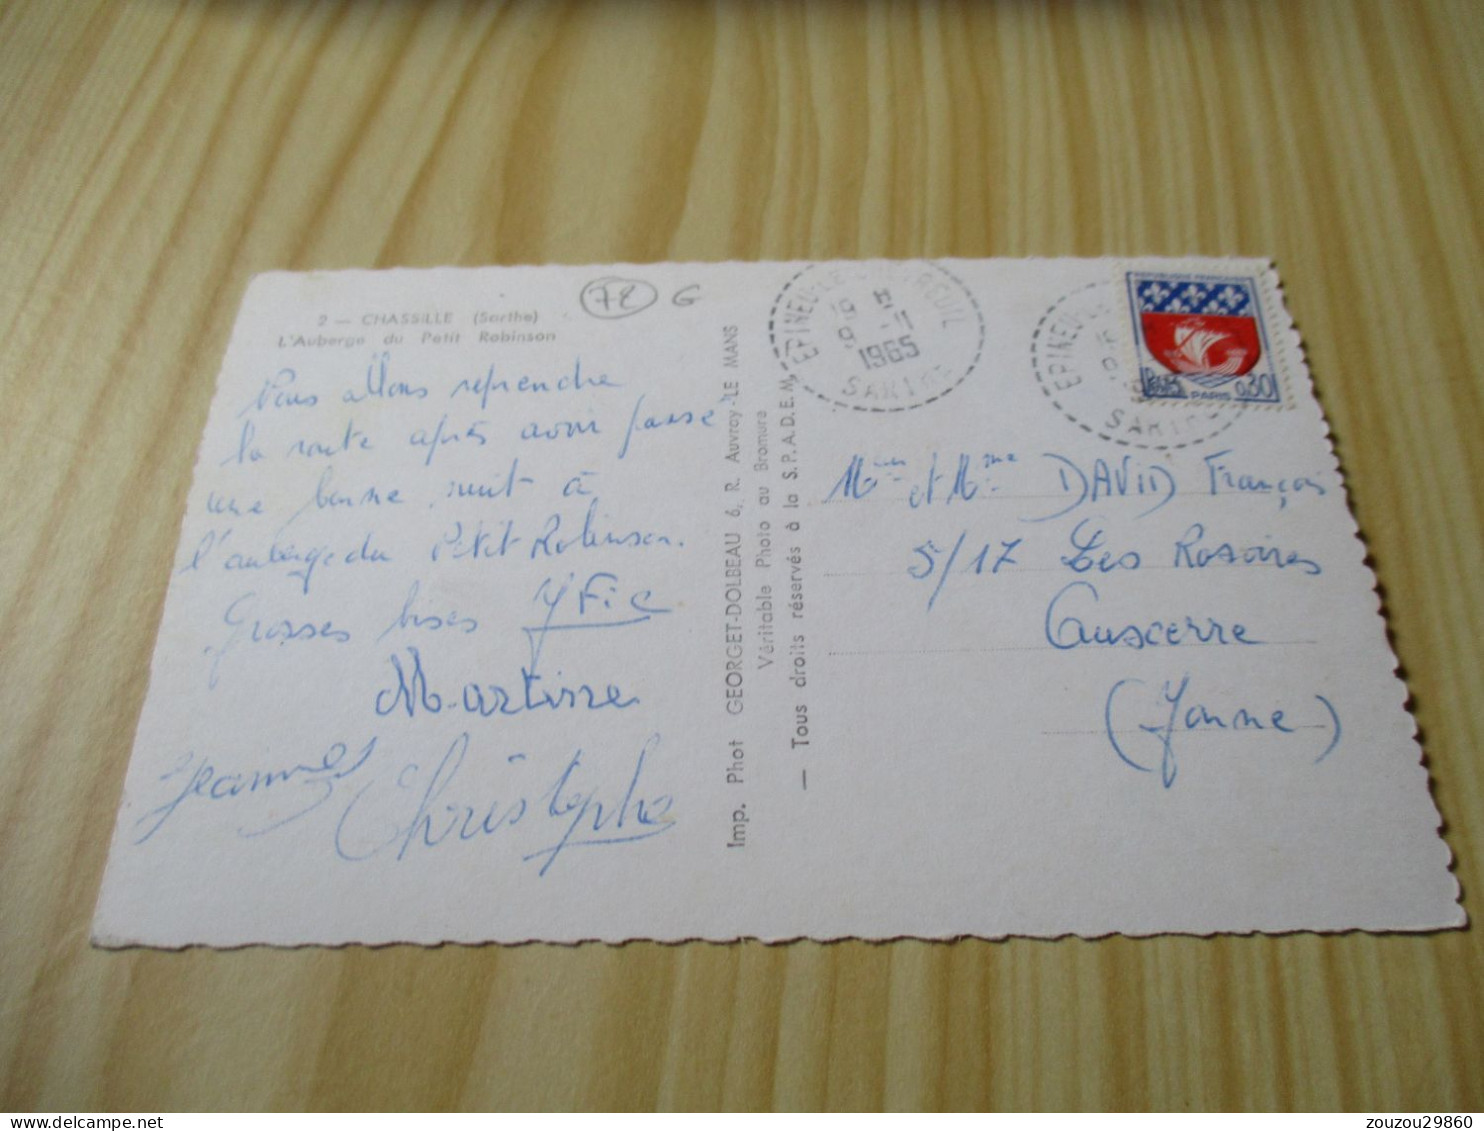 72 G
2 — CHASSILLE (Sarthe)
L'Auberge du Petit Robinson
Nous allons reprendre
la route après avoir passé
une bonne nuit à
l'auberge du Petit Robinson.
Grosses bises
Martine
Jeanne
Christophe
Imp. Phot GEORGET-DOLBEAU 6, R. Auvray - LE MANS
Véritable Photo au Bromure
— Tous droits réservés à la S.P.A.D.E.M.
EPINEU-LE-CHEVREUIL
19 H
9 -11
1965
SARTHE
EPINEU-LE
SARTHE
REPUBLIQUE FRANÇAISE
0,30
PARIS
et Mme DAVID François
5/17 Les Rosoires
Auxerre
(Yonne)
zouzou29860